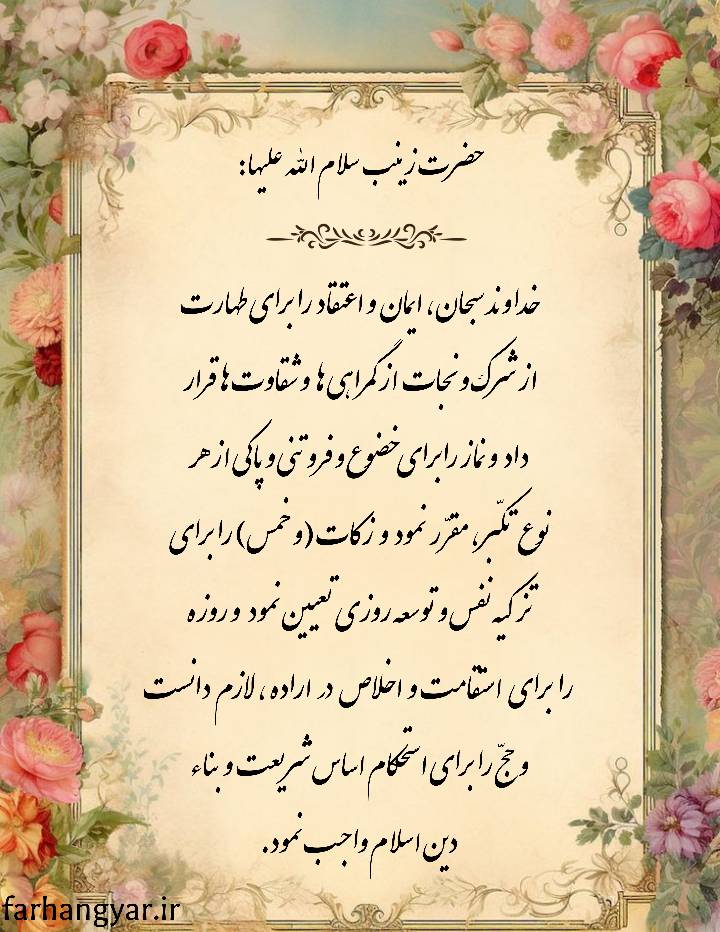 حضرت زینب سلام الله علیها:
خداوند سبحان، ایمان و اعتقاد را برای طهارت
از شرک و نجات از گمراهی ها و شقاوت ها قرار
داد و نماز را برای خضوع و فروتنی و پاکی از هر
نوع تکبّر، مقرّر نمود و زکات (و خمس) را برای
تزکیه نفس و توسعه روزی تعیین نمود و روزه
را برای استقامت و اخلاص در اراده، لازم دانست
و حجّ را برای استحکام اساس شریعت و بناء
دین اسلام واجب نمود.
farhangyar.ir